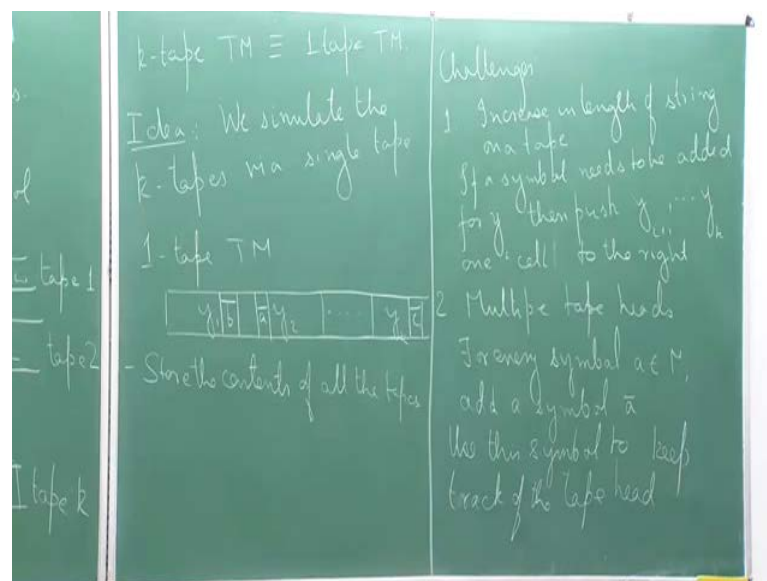 s.
ol
tape 1
tape2
tape k
k-tape TM ≡ 1 tape TM.
Idea: We simulate the
k-tapes via a single tape
1-tape TM
y₁ b̄ ā y₂ .... y c̄
- Store the contents of all the tapes
Challenges
1 Increase in length of string
on a tape
If a symbol needs to be added
for y then push yᵢ₊₁ ... yₖ
one cell to the right
2 Multipe tape heads
For every symbol a ∈ Γ,
add a symbol ā
Use this symbol to keep
track of the tape head